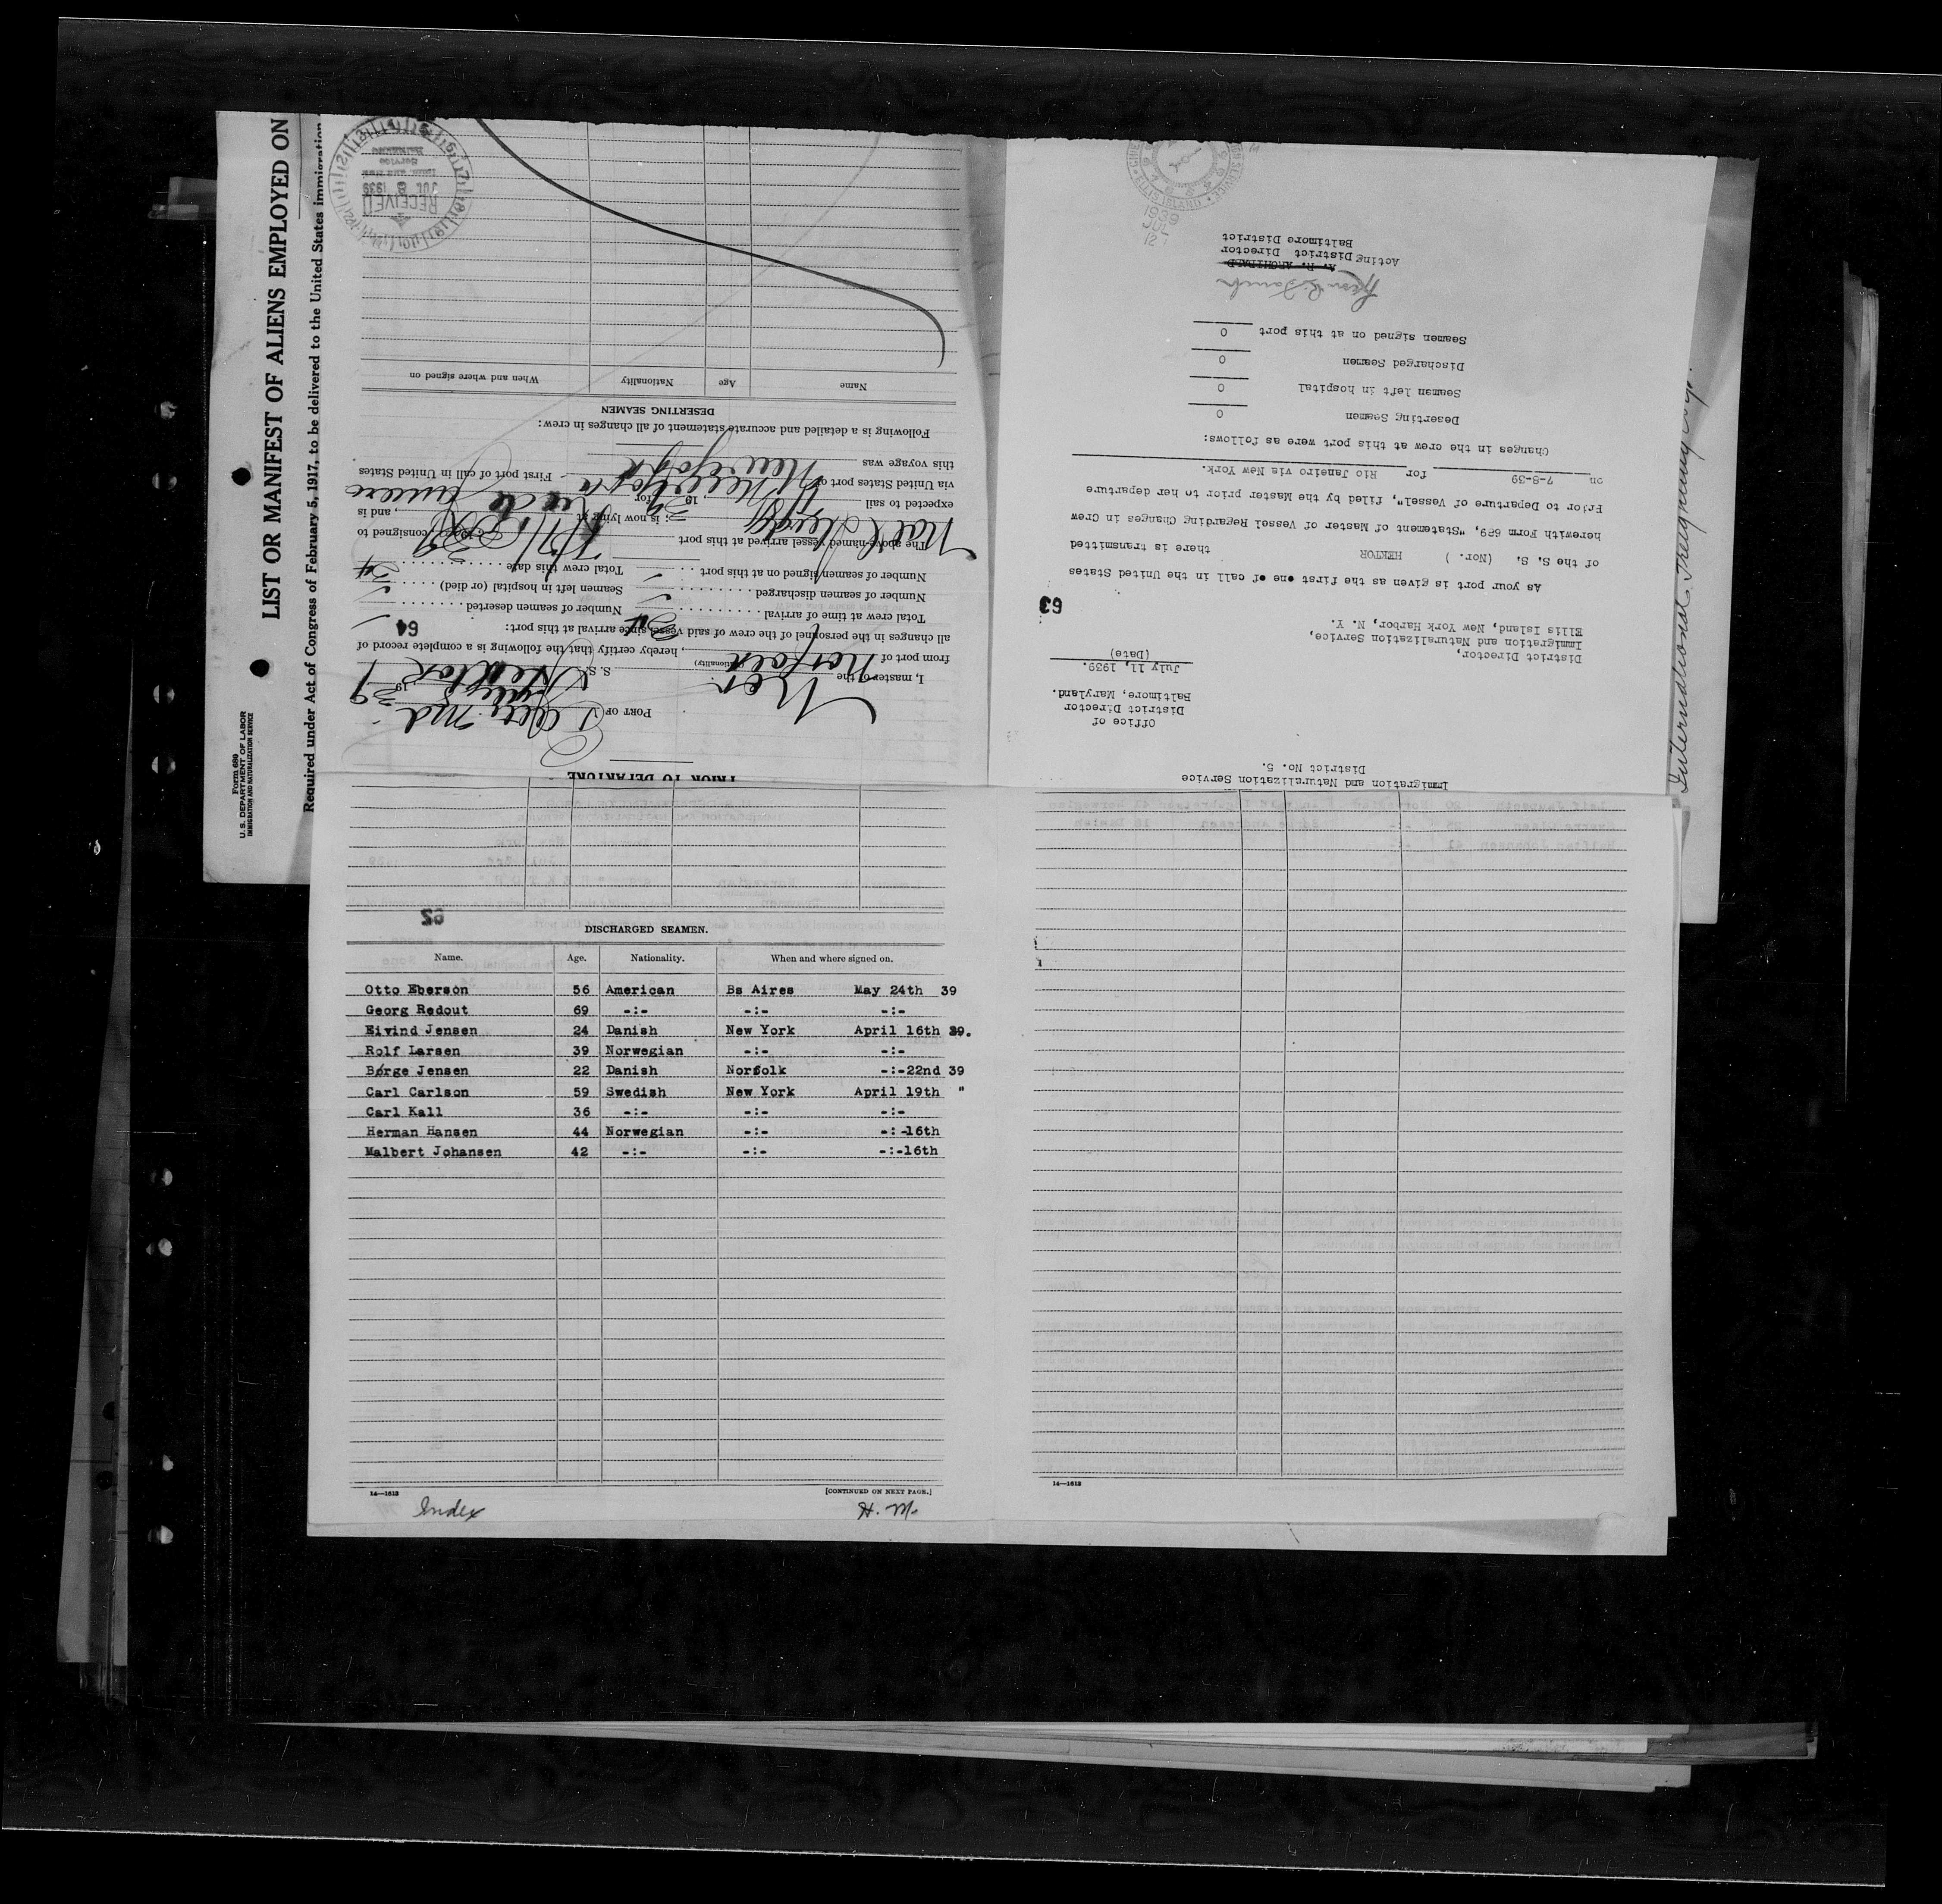 LIST OR MANIFEST OF ALIENS EMPLOYED ON
Required under Act of Congress of February 5, 1917, to be delivered to the United States immigration
Form 689
U. S. DEPARTMENT OF LABOR
IMMIGRATION AND NATURALIZATION SERVICE
PRIOR TO DEPARTURE
PORT OF Balto Md
19 39
I, master of the Nor S. S. Hektor
(Nationality)
from port of Norfolk, hereby certify that the following is a complete record of
all changes in the personnel of the crew of said vessel since arrival at this port:
64
Total crew at time of arrival 34 Number of seamen deserted
Number of seamen discharged Seamen left in hospital (or died)
Number of seamen signed on at this port Total crew this date 34
The above-named vessel arrived at this port consigned to
; is now lying at , and is
expected to sail 19 39 for Rio de Janeiro
via United States port of New York First port of call in United States
this voyage was New York
Following is a detailed and accurate statement of all changes in crew:
DESERTING SEAMEN
Name Age Nationality When and where signed on
RECEIVED
JUL 8 1939
Immigration and Naturalization Service
District No. 5.
Office of
District Director
Baltimore, Maryland.
July 11, 1939.
(Date)
District Director,
Immigration and Naturalization Service,
Ellis Island, New York Harbor, N. Y.
63
As your port is given as the first one of call in the United States
of the S. S. (Nor. ) HEKTOR there is transmitted
herewith Form 689, "Statement of Master of Vessel Regarding Changes in Crew
Prior to Departure of Vessel", filed by the Master prior to her departure
on 7-8-39 for Rio Janeiro via New York.
Changes in the crew at this port were as follows:
Deserting Seamen 0
Seamen left in hospital 0
Discharged Seamen 0
Seamen signed on at this port 0
A. R. ARCHIBALD
Acting District Director
Baltimore District
1939
JUL
12
ELLIS ISLAND
62
DISCHARGED SEAMEN.
Name. Age. Nationality. When and where signed on.
Otto Eberson 56 American Bs Aires May 24th 39
Georg Redout 69 -:- -:- -:-
Eivind Jensen 24 Danish New York April 16th 39.
Rolf Larsen 39 Norwegian -:- -:-
Børge Jensen 22 Danish Norfolk -:-22nd 39
Carl Carlson 59 Swedish New York April 19th "
Carl Kall 36 -:- -:- -:-
Herman Hansen 44 Norwegian -:- -:-16th
Malbert Johansen 42 -:- -:- -:-16th
14—1613 [CONTINUED ON NEXT PAGE.]
Index H. M.
14—1613